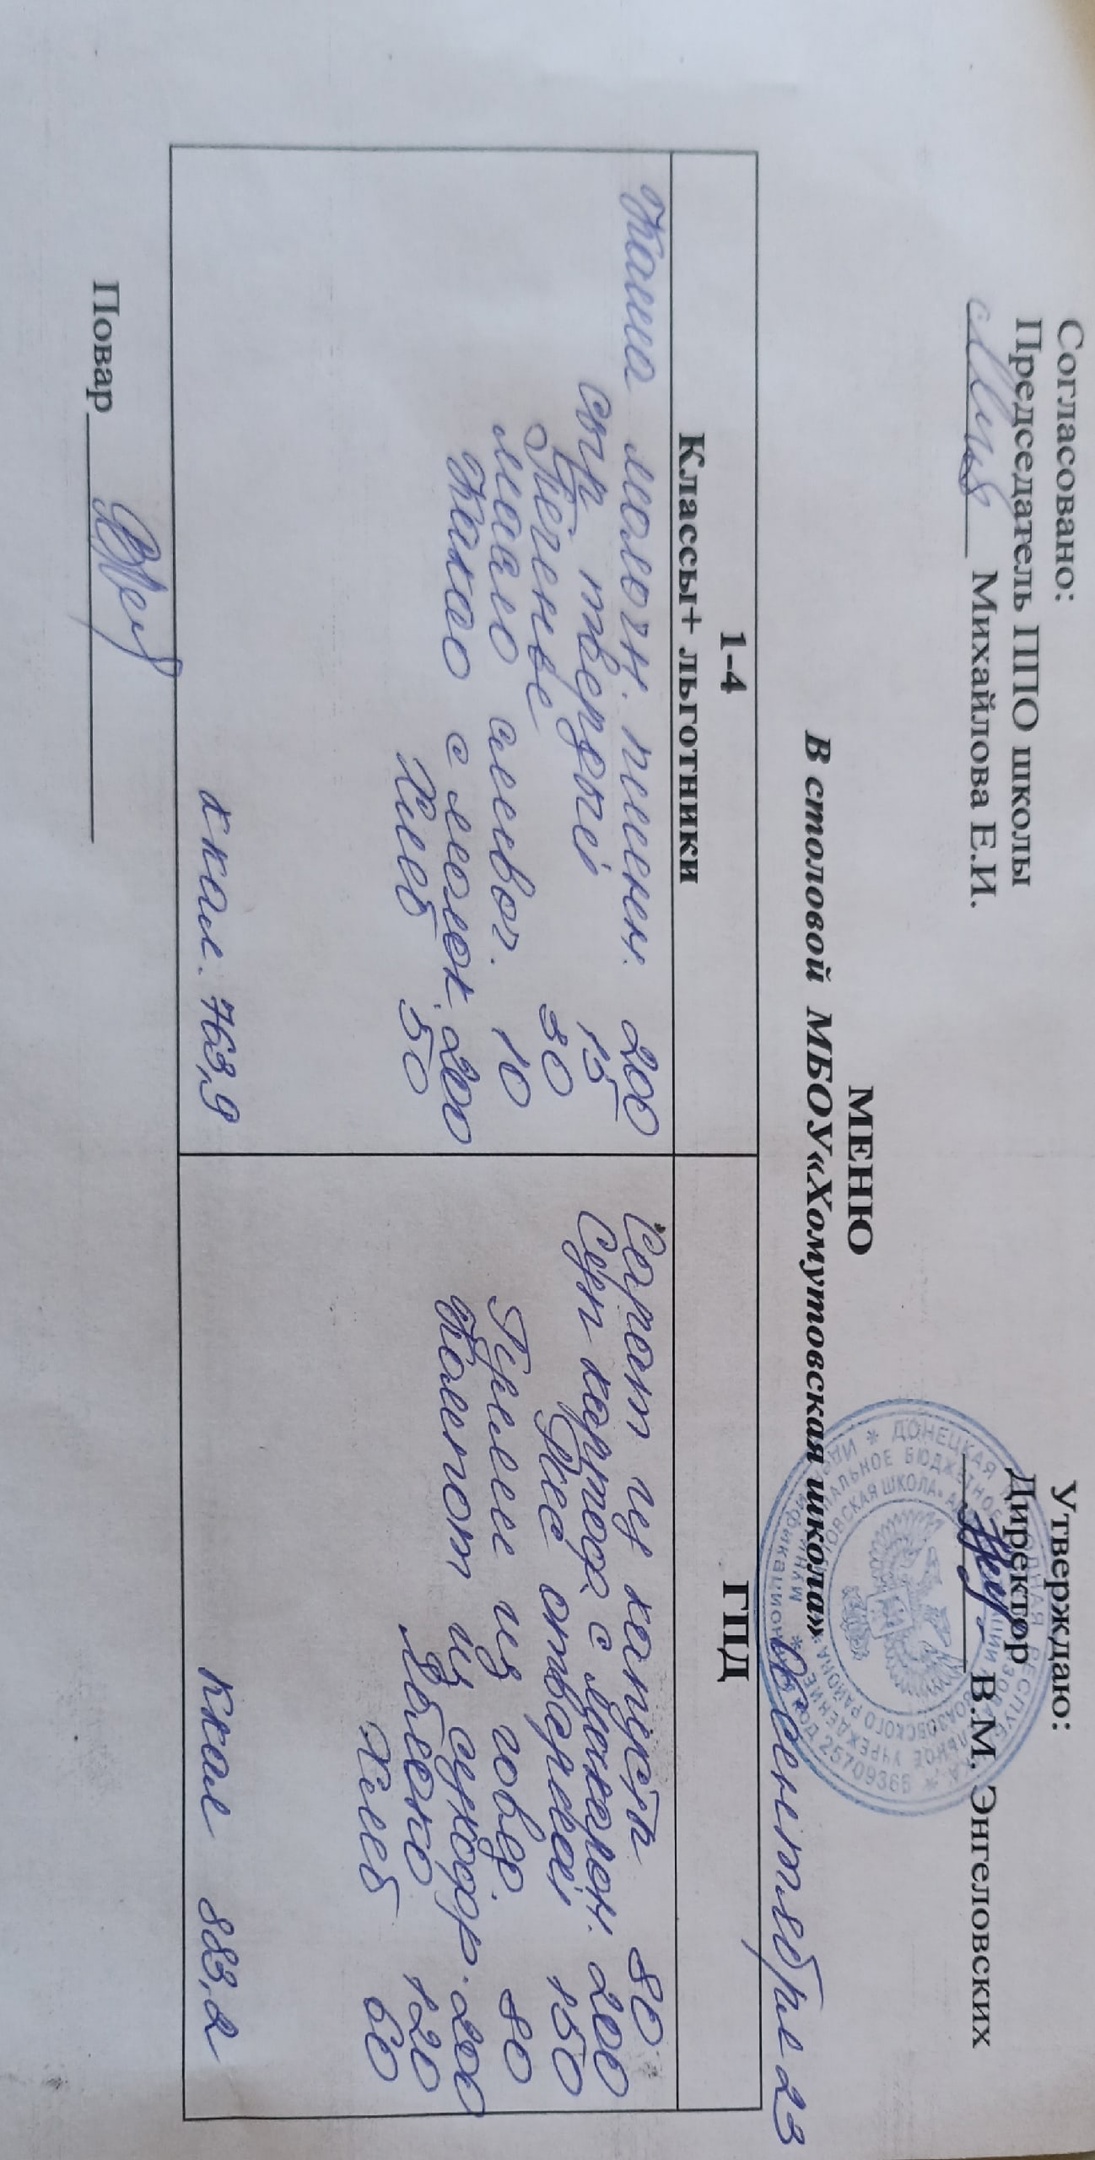 Согласовано:
Председатель ППО школы
Михайлова Е.И.
Утверждаю:
Директор
В.М. Энгеловских
МЕНЮ
В столовой МБОУ«Хомутовская школа»
сентября 23
1-4
Классы+ льготники
ГПД
Каша молочн. пшен. 200
сыр твердый 15
Печенье 30
масло сливоч. 10
Какао с молок. 200
Хлеб 50
ккал. 763,9
Салат из капусты 80
Суп картоф. с макарон. 200
Рис отварной 150
Гуляш из говяд. 80
Компот из сухофр. 200
Яблоко 120
Хлеб 60
Ккал 883,2
Повар